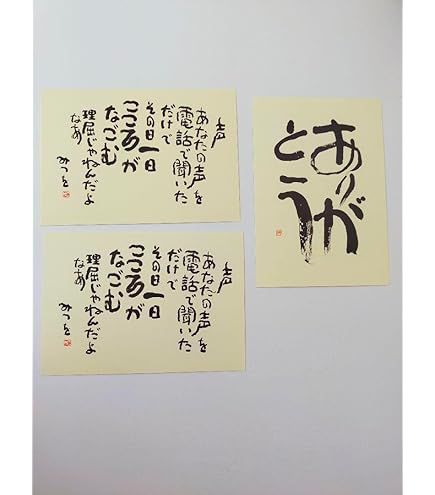 声
あなたの声を
電話で聞いた
だけで
その日一日
こころが
なごむ
理屈じゃねんだよ
なあ
みつを
声
あなたの声を
電話で聞いた
だけで
その日一日
こころが
なごむ
理屈じゃねんだよ
なあ
みつを
ありが
とう